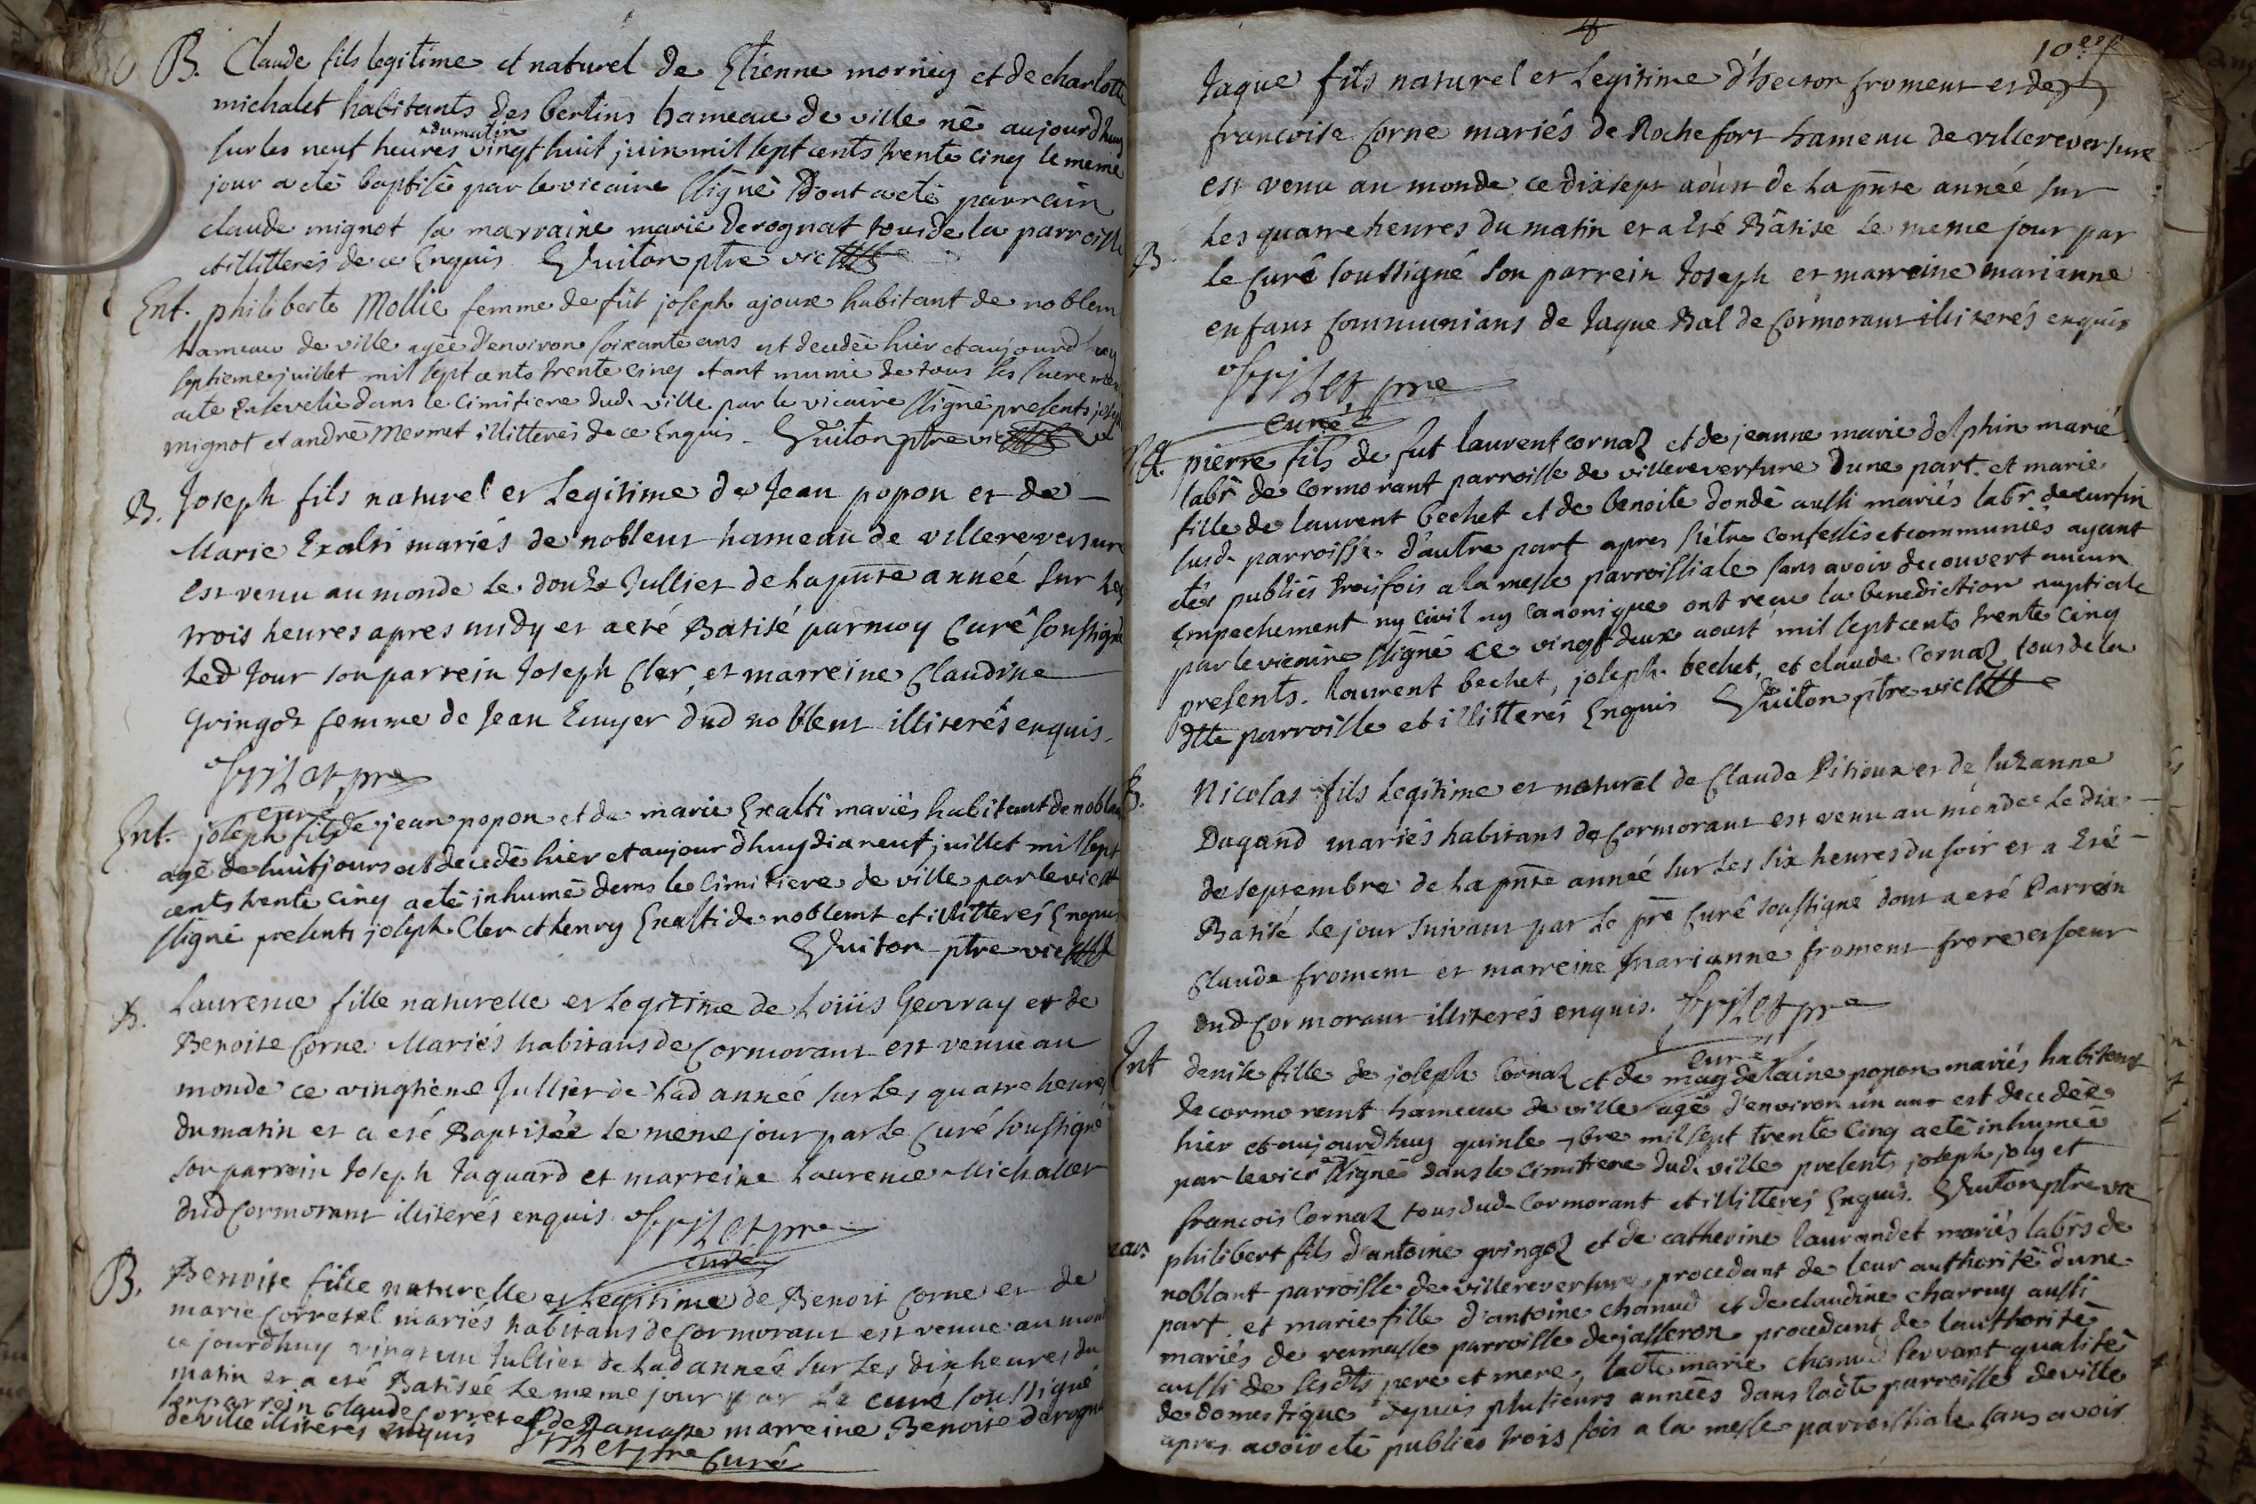 B. Claude fils legitime et naturel de Etienne morniey et de charlotte
michalet habitants des bertins hameau de ville né aujourdhuy
du matin
sur les neuf heures vingt huit juin mil sept cents trente cinq le meme
jour a eté baptisé par le vicaire ssigné dont a eté parrain
claude mignot sa marraine marie derognat tous de la parroisse
et illitteres de ce Enquis Vuiton ptre vic
Ent. philiberte Mollie femme de fût joseph ajoux habitant de noblem
hameau de ville agée d'environ soixante ans est decedée hier et aujourdhuy
septieme juillet mil sept cents trente cinq etant munie de tous les sacremen
a ete Ensevelie dans le Cimitiere dud. ville par le vicaire ssigné presents joseph
mignot et andré Mermet illitteres de ce Enquis. Vuiton ptre vic
B. Joseph fils naturel et Legitime de Jean popon et de
Marie Exalti mariés de noblent hameau de villereversure
est venu au monde le douze Julliet de la pnte année sur les
trois heures apres midy et a eté Batisé par moy Curé soussigné
Led Jour son parrein Joseph Cler et marreine Claudine
Gringoz femme de Jean Emyer dud noblent illiterés enquis.
frilet pre
curé
Ent. joseph fils de jean popon et de marie Exalti mariés habitant de noblent
agé de huit jours est decedé hier et aujourdhuy dixneuf juillet mil sept
cents trente cinq a eté inhumé dans le Cimitiere de ville par le vic
ssigné presents joseph Cler et henry Exalti de noblemt et illitterés Enquis
Vuiton ptre vic
B. Laurence fille naturelle et Legitime de Loüis Geovray et de
Benoite Corne Mariés habitans de Cormorant est venüe au
monde ce vingtieme Jullier de lad année sur les quatre heures
du matin et a eté Baptisée le meme jour par le Curé soussigné
son parrein Joseph Jaquard et marreine Laurence Michallet
dud Cormorant illiterés enquis. frilet pre
curé
B. Benoite fille naturelle et Legitime de Benoit Corne et de
marie Corretel mariés habitans de Cormorant est venue au mond
ce jourdhuy vingt un Jullier de lad année sur les dix heures du
matin et a eté Batisée le meme jour par le curé soussigné
son parrein Claude Corretel de Ramasse marreine Benoite Derogna
de ville illiterés enquis frilet ptre Curé
10
Jaque fils naturel et Legitime d'hector froment et de
francoise Corne mariés de Rochefort hameau de villereversure
est venu au monde ce dixsept août de la pnte année sur
les quatre heures du matin et a eté Bâtisé le meme jour par
B. le Curé soussigné son parrein Joseph et marreine marianne
enfans Communians de Jaque Bal de Cormorant illiterés enquis
frilet pre
curé
pierre fils de fut laurent cornaz et de jeanne marie dolphin mariés
labr de Cormorant parroisse de villereversure dune part. et marie
fille de laurent bechet et de benoite dondé aussi mariés labr de cursin
susd. parroisse. d'autre part apres s'être confessés et communiés ayant
étés publiés trois fois a la messe parroissiale sans avoir decouvert aucun
Empechement ny Civil ny Canonique ont reçu la benediction nuptiale
par le vicaire ssigné ce vingt deux aoust mil sept cents trente cinq
presents. laurent bechet, joseph bechet, et claude Cornaz tous de la
dtte parroisse et illitterés Enquis Vuiton ptre vic
B. Nicolas fils Legitime et naturel de Claude Pitioux et de Suzanne
Dagand mariés habitans de Cormorant est venu au monde le dix
de septembre de la pnte année sur les six heures du soir et a Eté
Batisé le jour suivant par le pre Curé soussigné dont a eté Parrein
Claude froment et marreine Marianne froment frere et soeur
dud Cormorant illiterés enquis. frilet pre
curé
Ent denise fille de joseph Cornaz et de magdelaine popon mariés habitant
de cormorant hameau de ville agé d'environ un ans est decedée
hier et aujourdhuy quinse 7bre mil sept trente cinq a eté inhumée
par le vicre ssigné dans le Cimitiere dud. ville presents joseph joly et
francois Cornaz tous dud. Cormorant et illitteres Enquis. Vuiton ptre vic
philibert fils d'antoine gringoz et de catherine laurandet mariés labrs de
noblant parroisse de villereversure procedant de leur authorité d'une
part et marie fille d'antoine chanud et de claudine charruy aussi
mariés de ramasse parroisse de jasseron procedant de l'authorité
aussi de sesdts pere et mere, ladte marie chanud servant qualité
de domestique depuis plusieurs années dans ladte parroisse de ville
apres avoir eté publiés trois fois a la messe parroissiale sans avoir